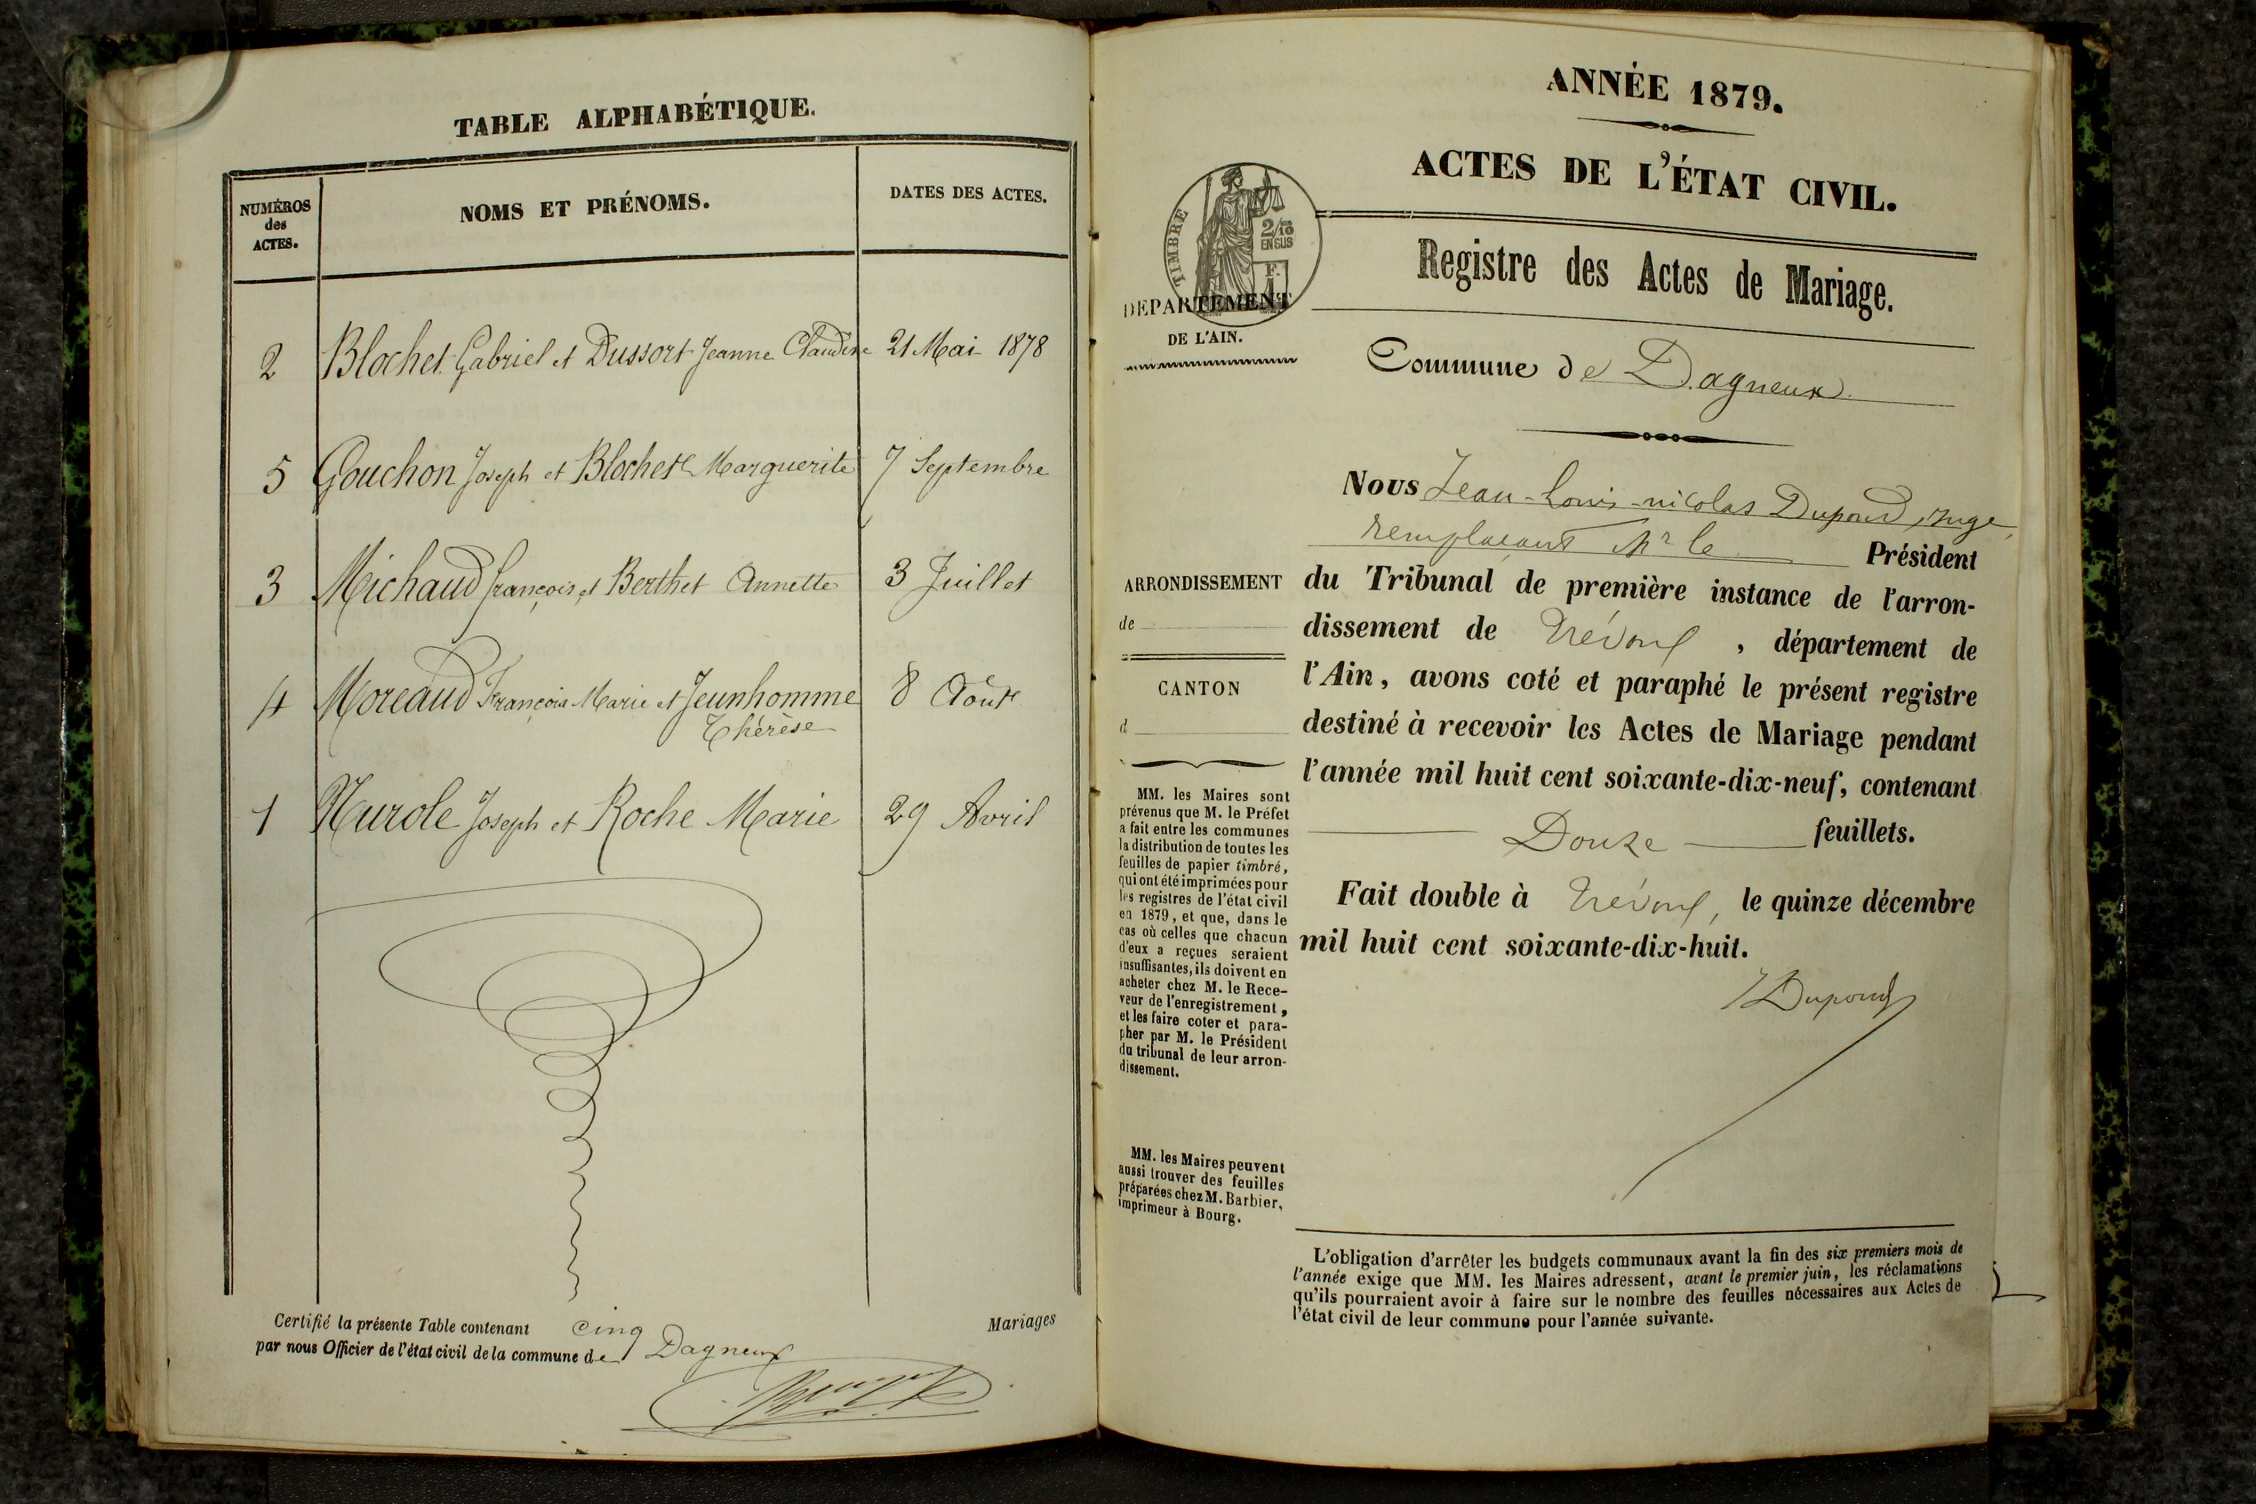 TABLE ALPHABÉTIQUE.
NUMÉROS
des
ACTES.
NOMS ET PRÉNOMS.
DATES DES ACTES.
2 Blochet Gabriel et Dussort Jeanne Claudine 21 Mai 1878
5 Gouchon Joseph et Blochet Marguerite 7 Septembre
3 Michaud françois et Berthet Annette 3 Juillet
4 Moreaud François Marie et Jeunhomme 8 Août
Thérèse
1 Murole Joseph et Roche Marie 29 Avril
Certifié la présente Table contenant cinq Mariages
par nous Officier de l'état civil de la commune de Dagneux
ANNÉE 1879.
ACTES DE L'ÉTAT CIVIL.
TIMBRE
2/10
EN SUS
F.
1
DÉPARTEMENT
DE L'AIN.
Registre des Actes de Mariage.
Commune de Dagneux.
ARRONDISSEMENT
de
CANTON
d
MM. les Maires sont
prévenus que M. le Préfet
a fait entre les communes
la distribution de toutes les
feuilles de papier timbré,
qui ont été imprimées pour
les registres de l'état civil
en 1879, et que, dans le
cas où celles que chacun
d'eux a reçues seraient
insuffisantes, ils doivent en
acheter chez M. le Rece-
veur de l'enregistrement,
et les faire coter et para-
pher par M. le Président
du tribunal de leur arron-
dissement.
MM. les Maires peuvent
aussi trouver des feuilles
préparées chez M. Barbier,
imprimeur à Bourg.
Nous Jean-Louis-nicolas Dupond, Juge,
remplaçant Mr le Président
du Tribunal de première instance de l'arron-
dissement de Trévoux, département de
l'Ain, avons coté et paraphé le présent registre
destiné à recevoir les Actes de Mariage pendant
l'année mil huit cent soixante-dix-neuf, contenant
Douze feuillets.
Fait double à Trévoux, le quinze décembre
mil huit cent soixante-dix-huit.
Dupond
L'obligation d'arrêter les budgets communaux avant la fin des six premiers mois de
l'année exige que MM. les Maires adressent, avant le premier juin, les réclamations
qu'ils pourraient avoir à faire sur le nombre des feuilles nécessaires aux Actes de
l'état civil de leur commune pour l'année suivante.